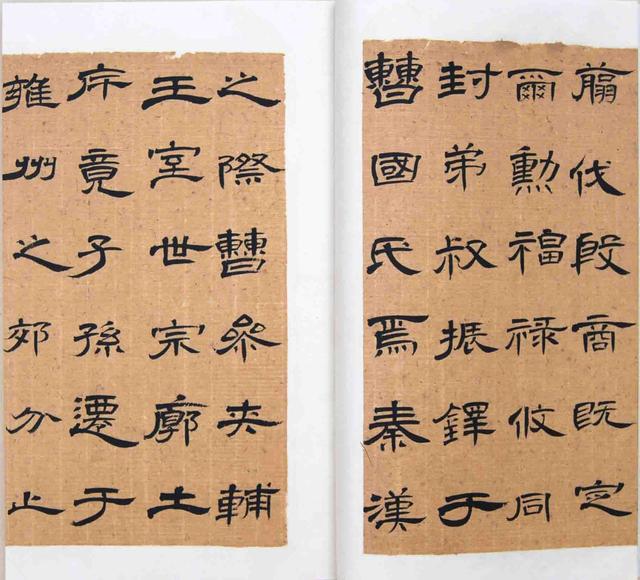 翦伐殷商既定
爾勳福祿攸同
封弟叔振鐸于
曹國氏焉秦漢
之際曹參夾輔
王室世宗廓土
斥竟子孫遷于
雍州之郊分止